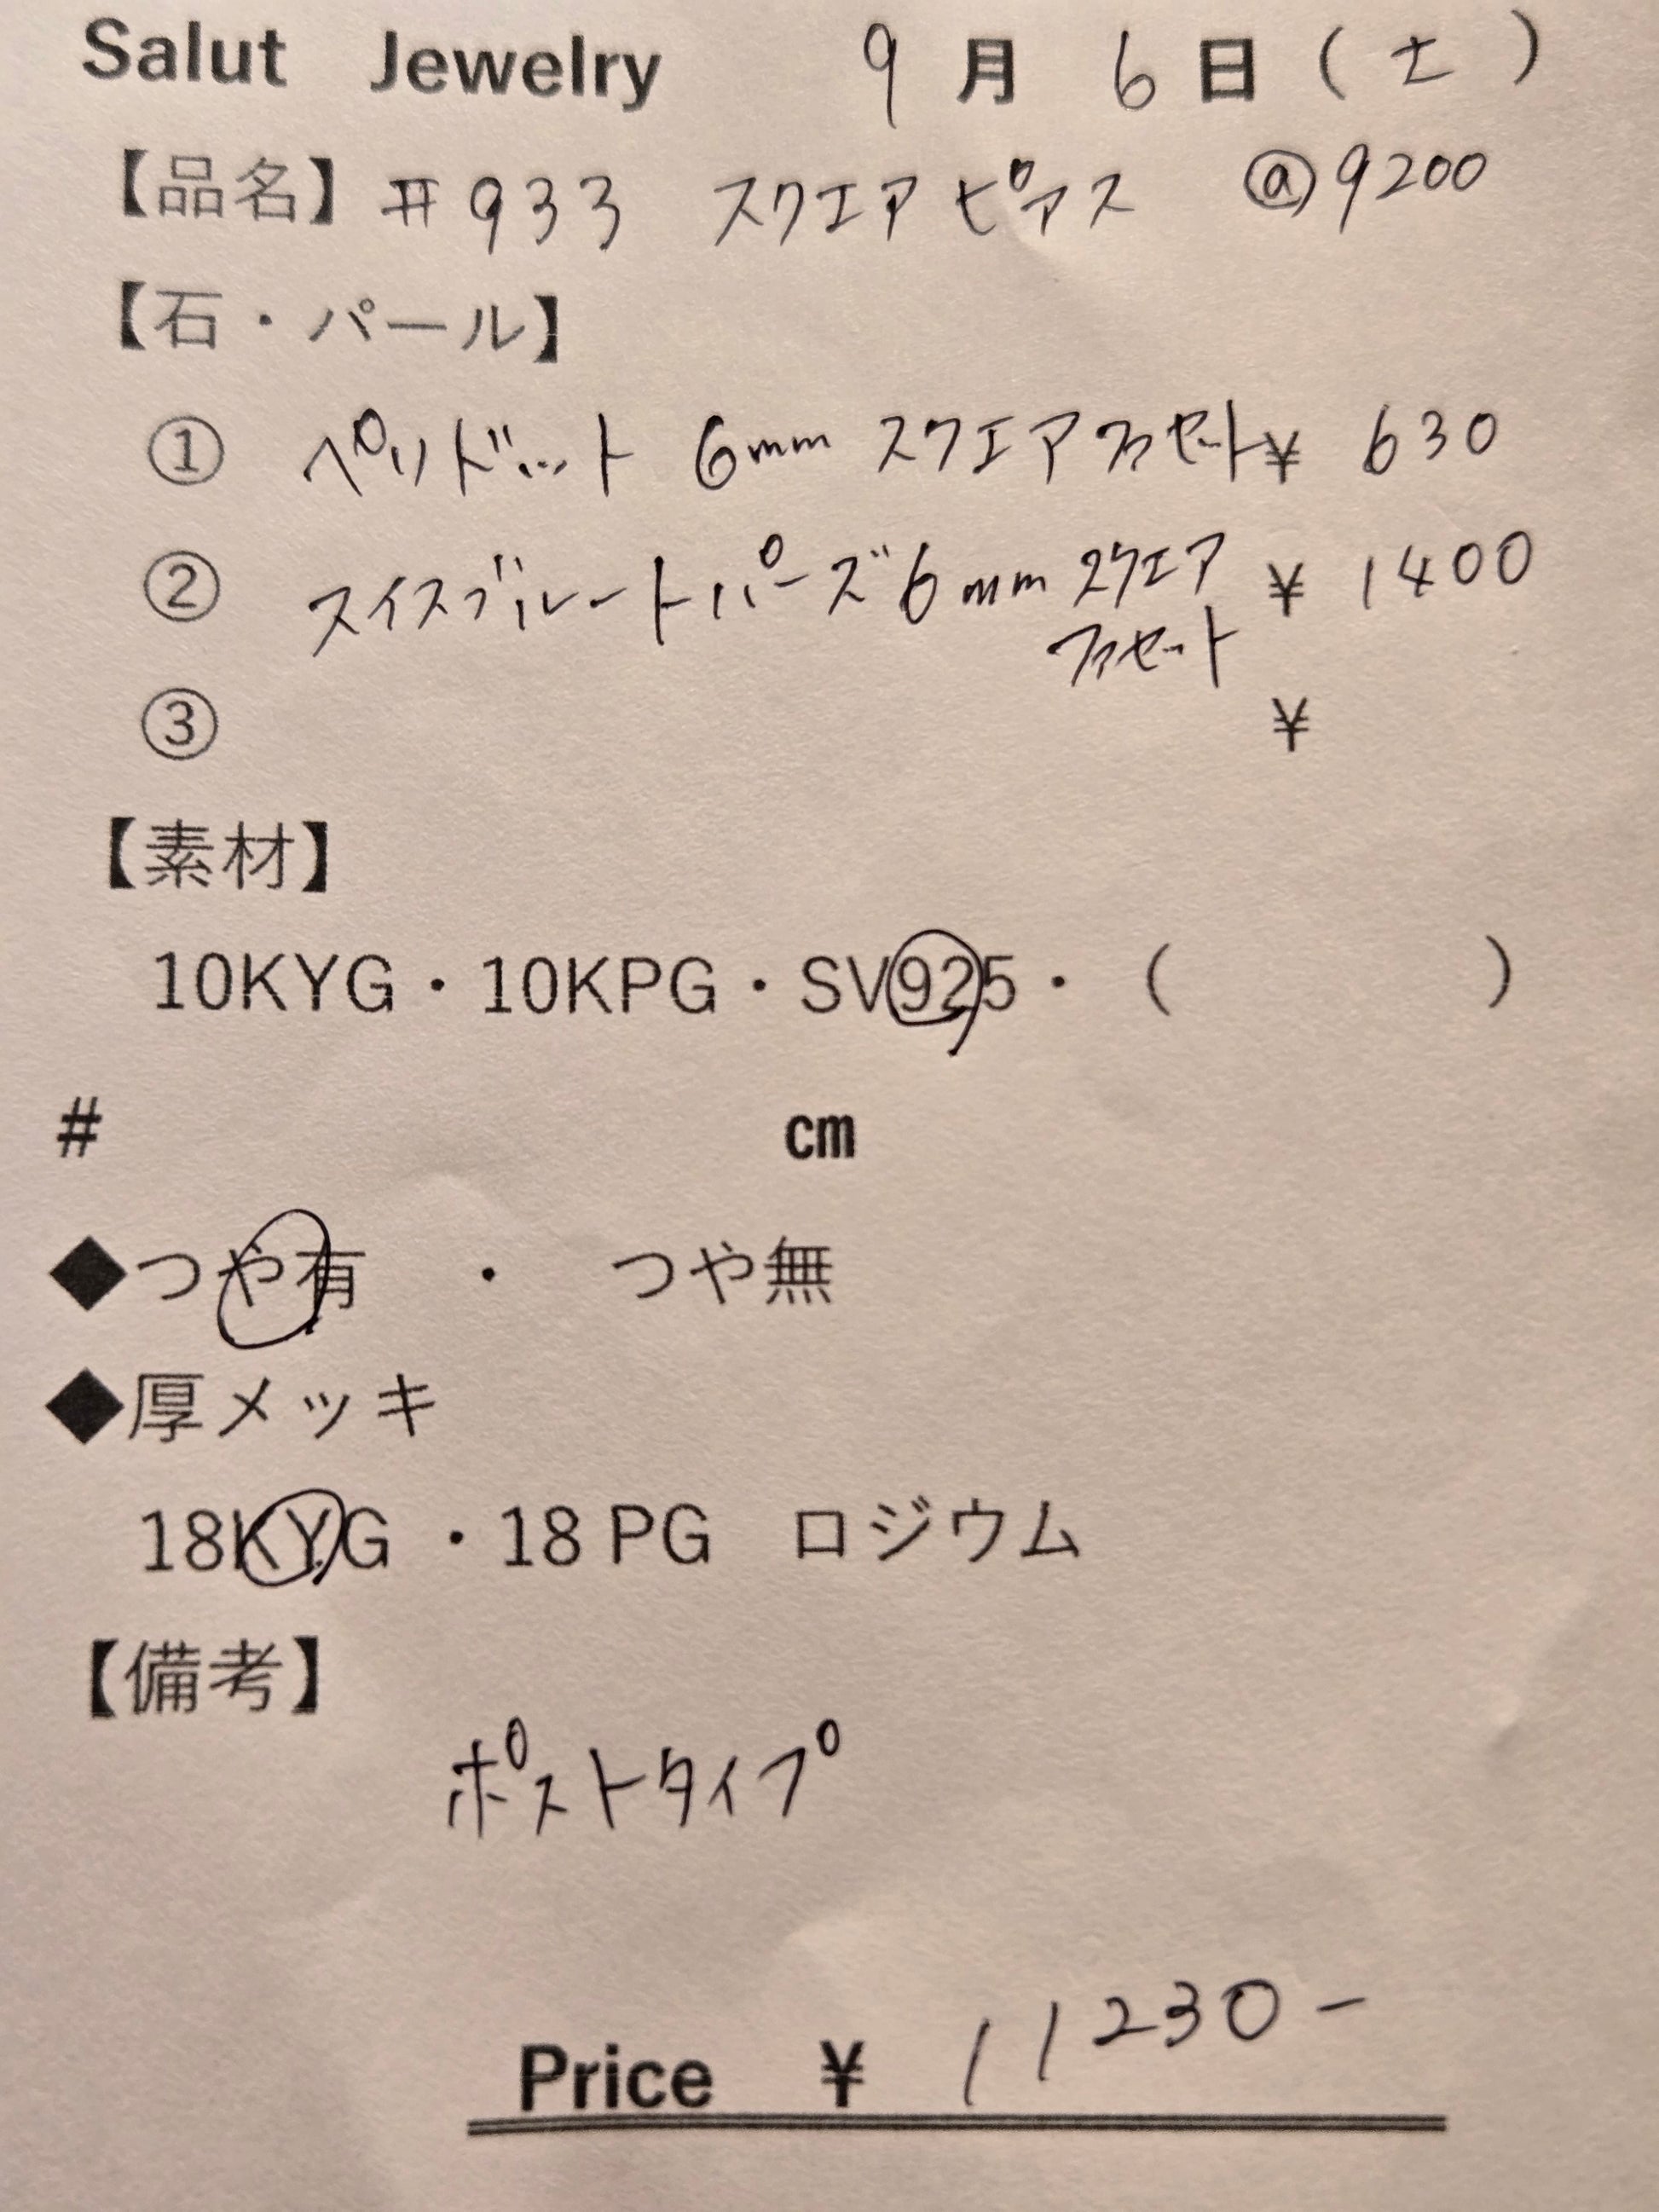 Salut Jewelry 9月6日(土)
【品名】#933 スクエアピアス @9200
【石・パール】
① ペリドット 6mm スクエアファセット ¥ 630
② スイスブルートパーズ 6mm スクエア ¥ 1400
ファセット
③ ¥
【素材】
10KYG・10KPG・SV925・( )
# cm
◆つや有 ・ つや無
◆厚メッキ
18KYG ・18 PG ロジウム
【備考】
ポストタイプ
Price ¥ 11230-